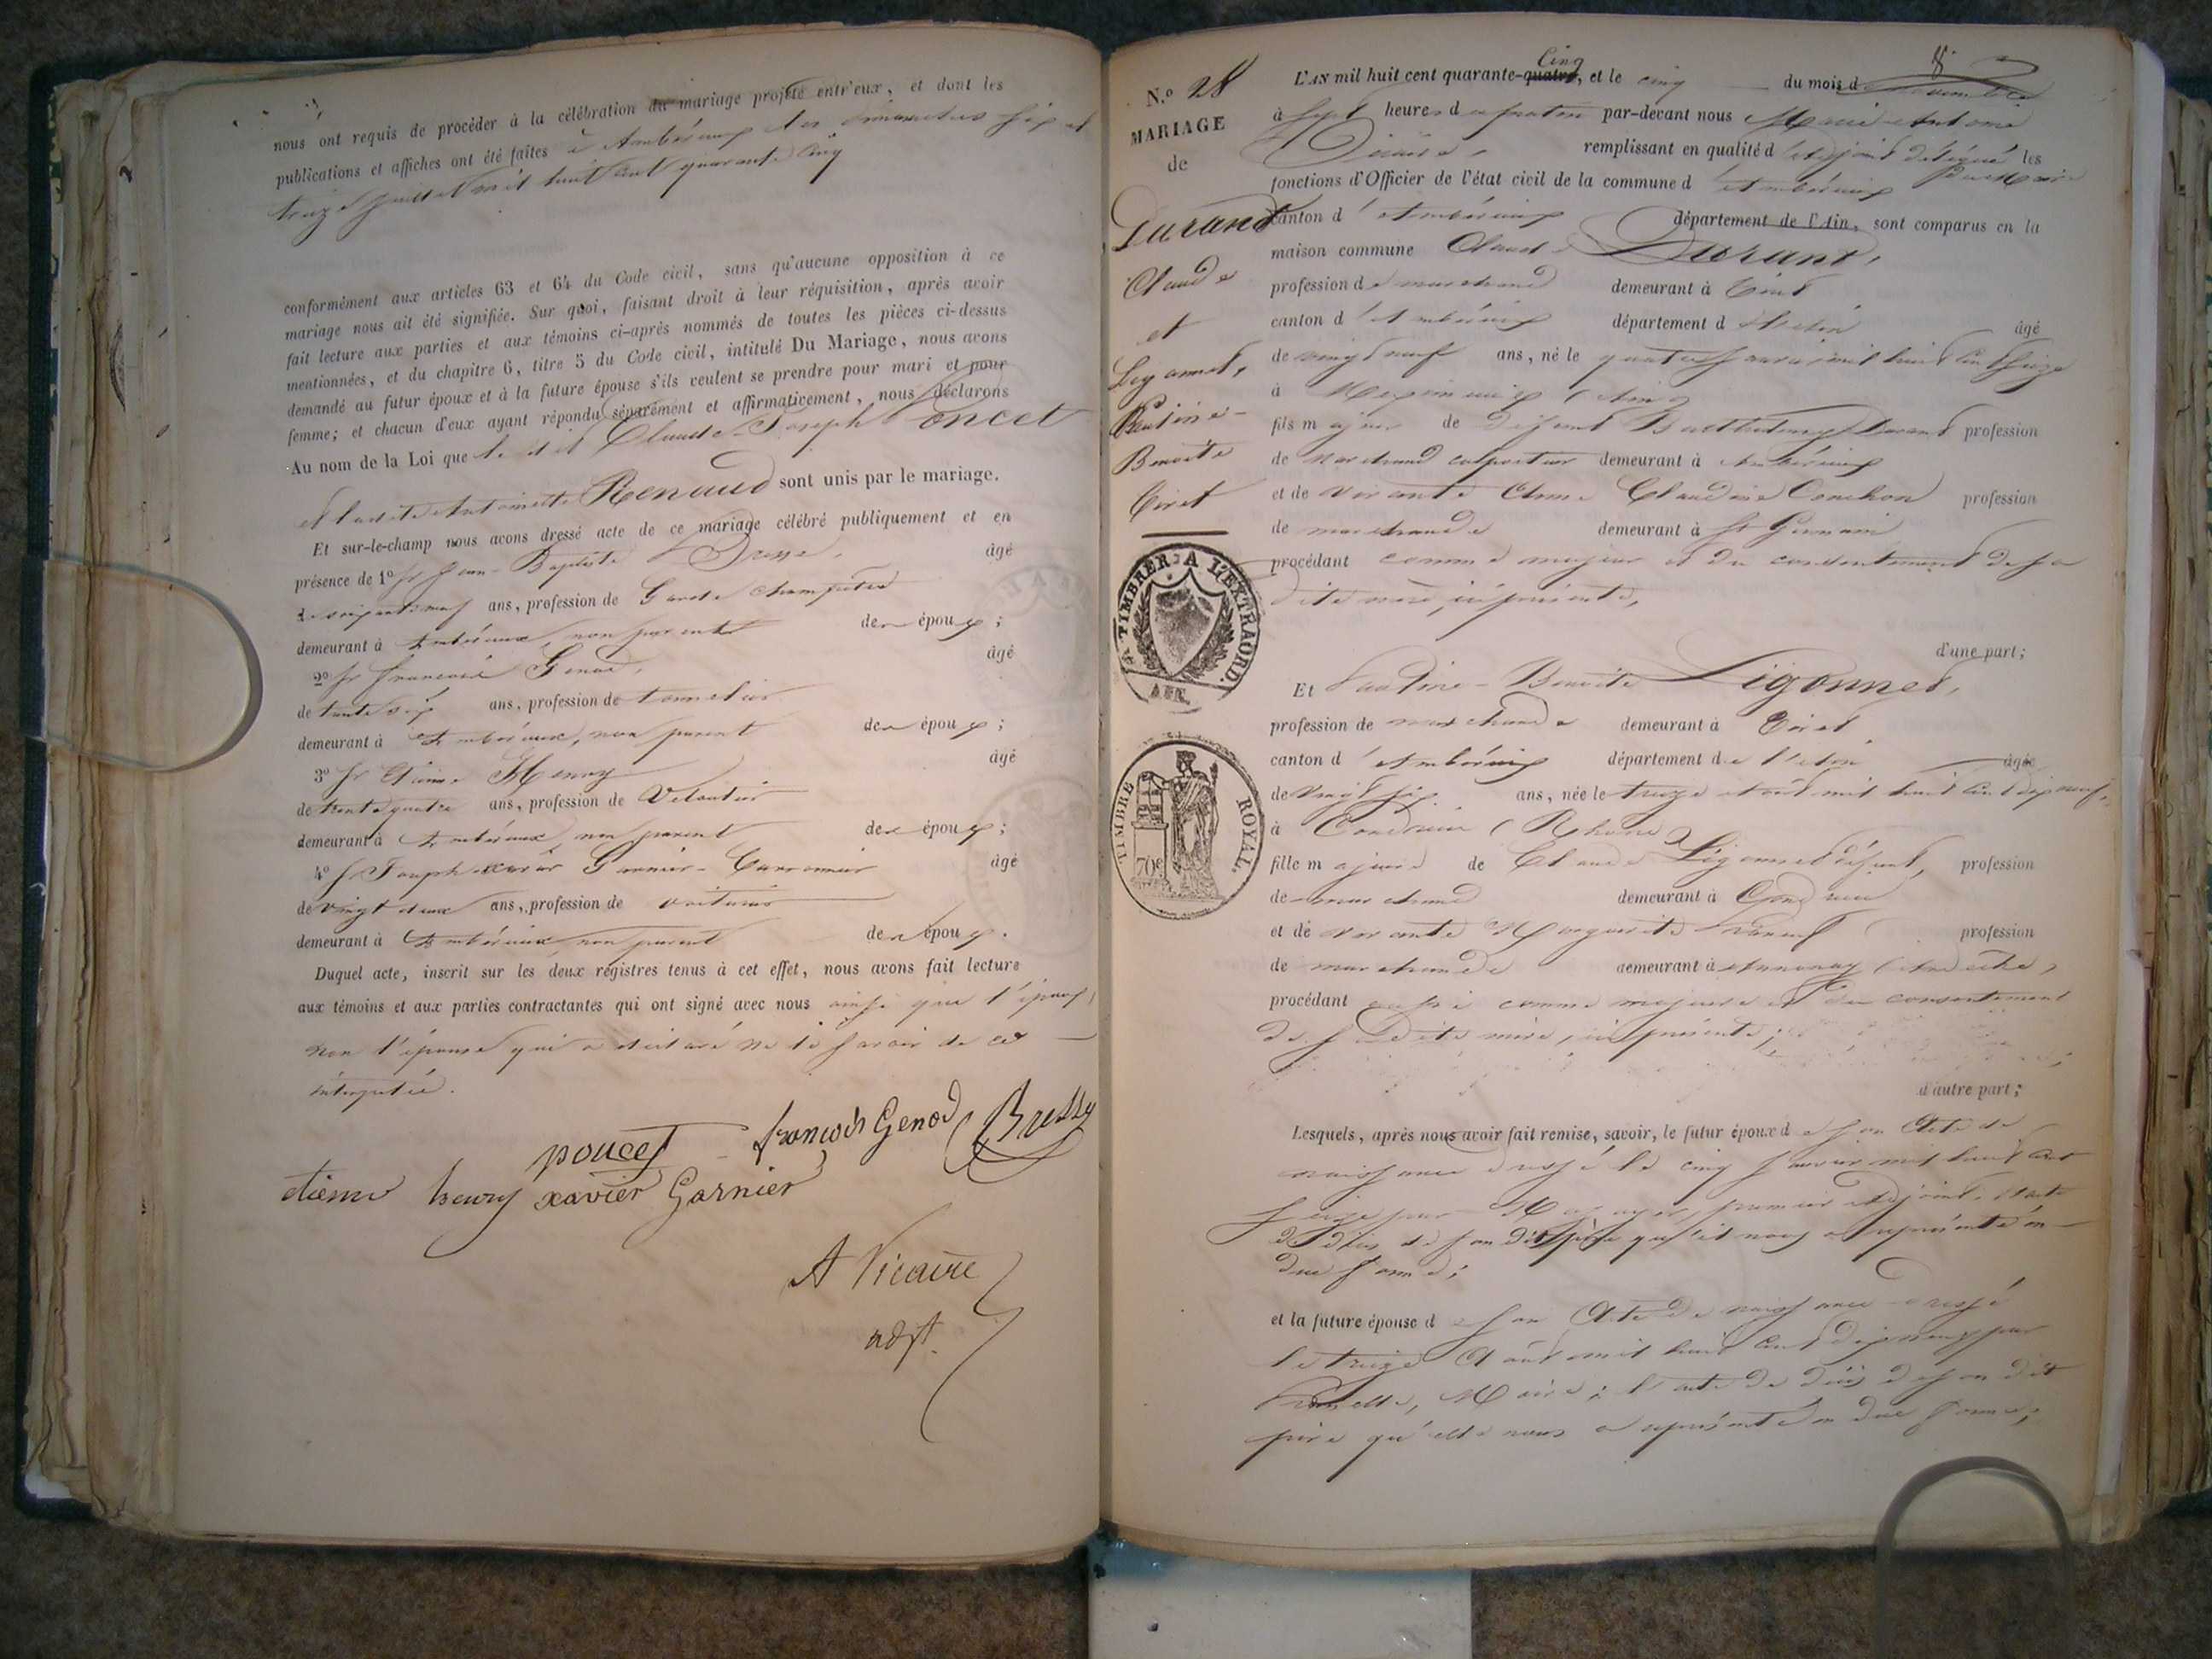 nous ont requis de procéder à la célébration du mariage projeté entr'eux, et dont les
publications et affiches ont été faites à Ambérieux les dimanches six et
treize juillet mil huit cent quarante cinq
conformément aux articles 63 et 64 du Code civil, sans qu'aucune opposition à ce
mariage nous ait été signifiée. Sur quoi, faisant droit à leur réquisition, après avoir
fait lecture aux parties et aux témoins ci-après nommés de toutes les pièces ci-dessus
mentionnées, et du chapitre 6, titre 5 du Code civil, intitulé Du Mariage, nous avons
demandé au futur époux et à la future épouse s'ils veulent se prendre pour mari et pour
femme; et chacun d'eux ayant répondu séparément et affirmativement, nous déclarons
Au nom de la Loi que le dit Claude-Joseph Poncet
et ladite Antoinette Renaud sont unis par le mariage.
Et sur-le-champ nous avons dressé acte de ce mariage célébré publiquement et en
présence de 1º Sr Jean-Baptiste Bressy, âgé
ans, profession de Garde champêtre
demeurant à Ambérieux, non parent des époux;
2º Sr François Genod, âgé
de trente six ans, profession de tonnelier
demeurant à Ambérieux, non parent des époux;
3º Sr Etienne Henry âgé
de trente quatre ans, profession de
demeurant à Ambérieux non parent des époux;
4º Sr Joseph xavier Garnier- âgé
de vingt deux ans, profession de voiturier
demeurant à Ambérieux non parent des époux.
Duquel acte, inscrit sur les deux régistres tenus à cet effet, nous avons fait lecture
aux témoins et aux parties contractantes qui ont signé avec nous ainsi que l'époux,
non l'épouse qui a déclaré ne le savoir de ce
interpellée.
poncet françois Genod Bressy
etienne henry xavier Garnier
A Vicaire
adjt.
N.º 28
MARIAGE
de
Durand
Claude
et
Ligonnet,
Pauline-
Benoite
Tiret
A TIMBRER A L'EXTRAORD.
AIN.
TIMBRE ROYAL
70c
L'AN mil huit cent quarante-quatre, Cinq et le cinq du mois d
à sept heures du matin par-devant nous Marie Antoine
Vicaire, remplissant en qualité d'adjoint délégué les
fonctions d'Officier de l'état civil de la commune d'Ambérieux du Maire
canton d'Ambérieux département de l'Ain, sont comparus en la
maison commune Claude Durant,
profession de marchand demeurant à Tiret
canton d'Ambérieux département de l'Ain âgé
de vingt neuf ans, né le quatre janvier mil huit cent seize
à Meximieux (Ain)
fils majeur de défunt Barthelemy Durand profession
de marchand colporteur demeurant à Ambérieux
et de vivante Anne Claudine profession
de marchande demeurant à St Germain
procédant comme majeur et du consentement de sa
dite mère, ici présente,
d'une part;
Et Pauline-Benoite Ligonnet,
profession de marchande demeurant à Tiret
canton d'Ambérieux département de l'Ain âgée
de vingt six ans, née le treize Août mil huit cent dix neuf,
à Condrieu (Rhone)
fille majeure de Claude Ligonnet défunt, profession
de marchand demeurant à Condrieu
et de vivante Marguerite profession
de marchande demeurant à Annonay (Ardèche)
procédant aussi comme majeure et du consentement
de sa dite mère, ici présente;
d'autre part;
Lesquels, après nous avoir fait remise, savoir, le futur époux de son Acte de
naissance dressé le cinq janvier mil huit cent
seize par premier adjoint, l'acte
de décès de son dit père qu'il nous a représenté en
due forme;
et la future épouse de son Acte de naissance dressé
le treize Août mil huit cent dix neuf par
Maire; l'acte de décès de son dit
père qu'elle nous a représenté en due forme;